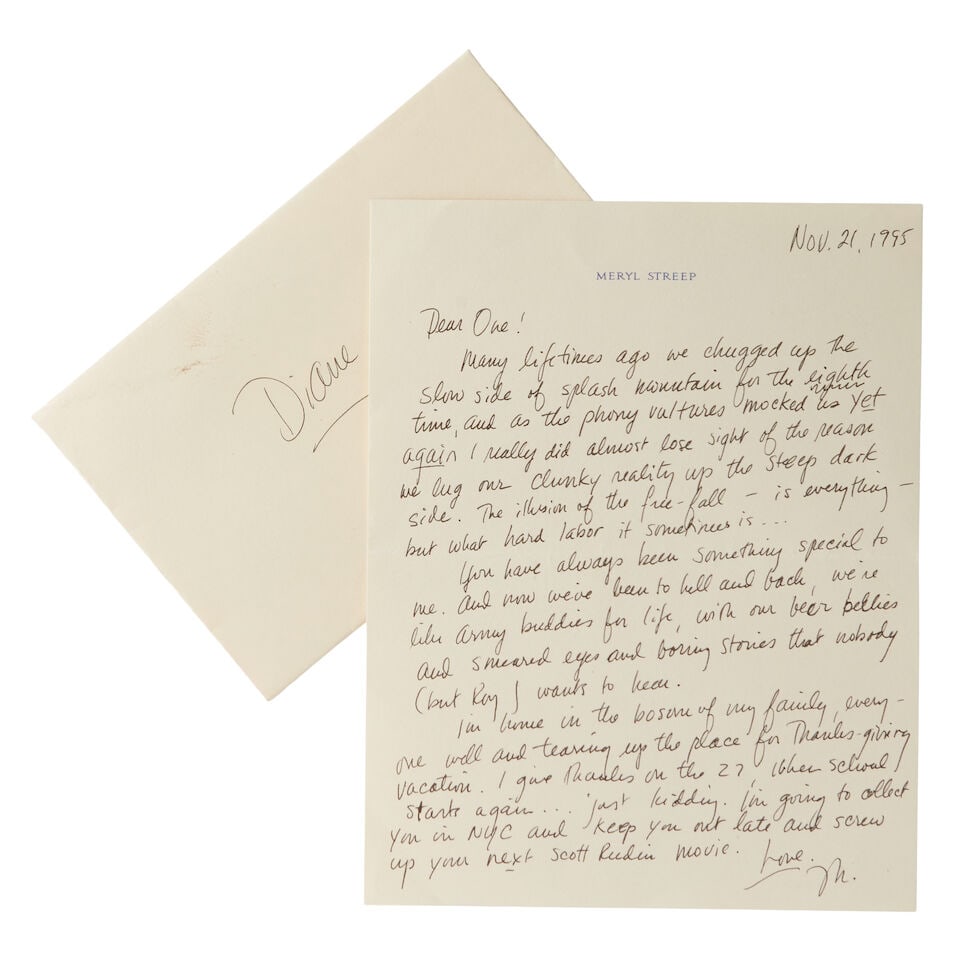 Diane
Nov. 21, 1995
MERYL STREEP
Dear One!
Many lifetimes ago we chugged up the
slow side of splash mountain for the eighth
time, and as the phony vultures mocked us yet
again I really did almost lose sight of the reason
we lug our clunky reality up the steep dark
side. The illusion of the free-fall – is everything –
but what hard labor it sometimes is...
You have always been something special to
me. And now we've been to hell and back, we're
like army buddies for life, with our beer bellies
and smeared eyes and boring stories that nobody
(but Roy) wants to hear.
I'm home in the bosom of my family, every-
one well and tearing up the place for Thanks-giving
vacation. I give Thanks on the 27, when school
starts again... just kidding. I'm going to collect
you in NYC and keep you out late and screw
up your next Scott Rudin movie.
Love,
M.